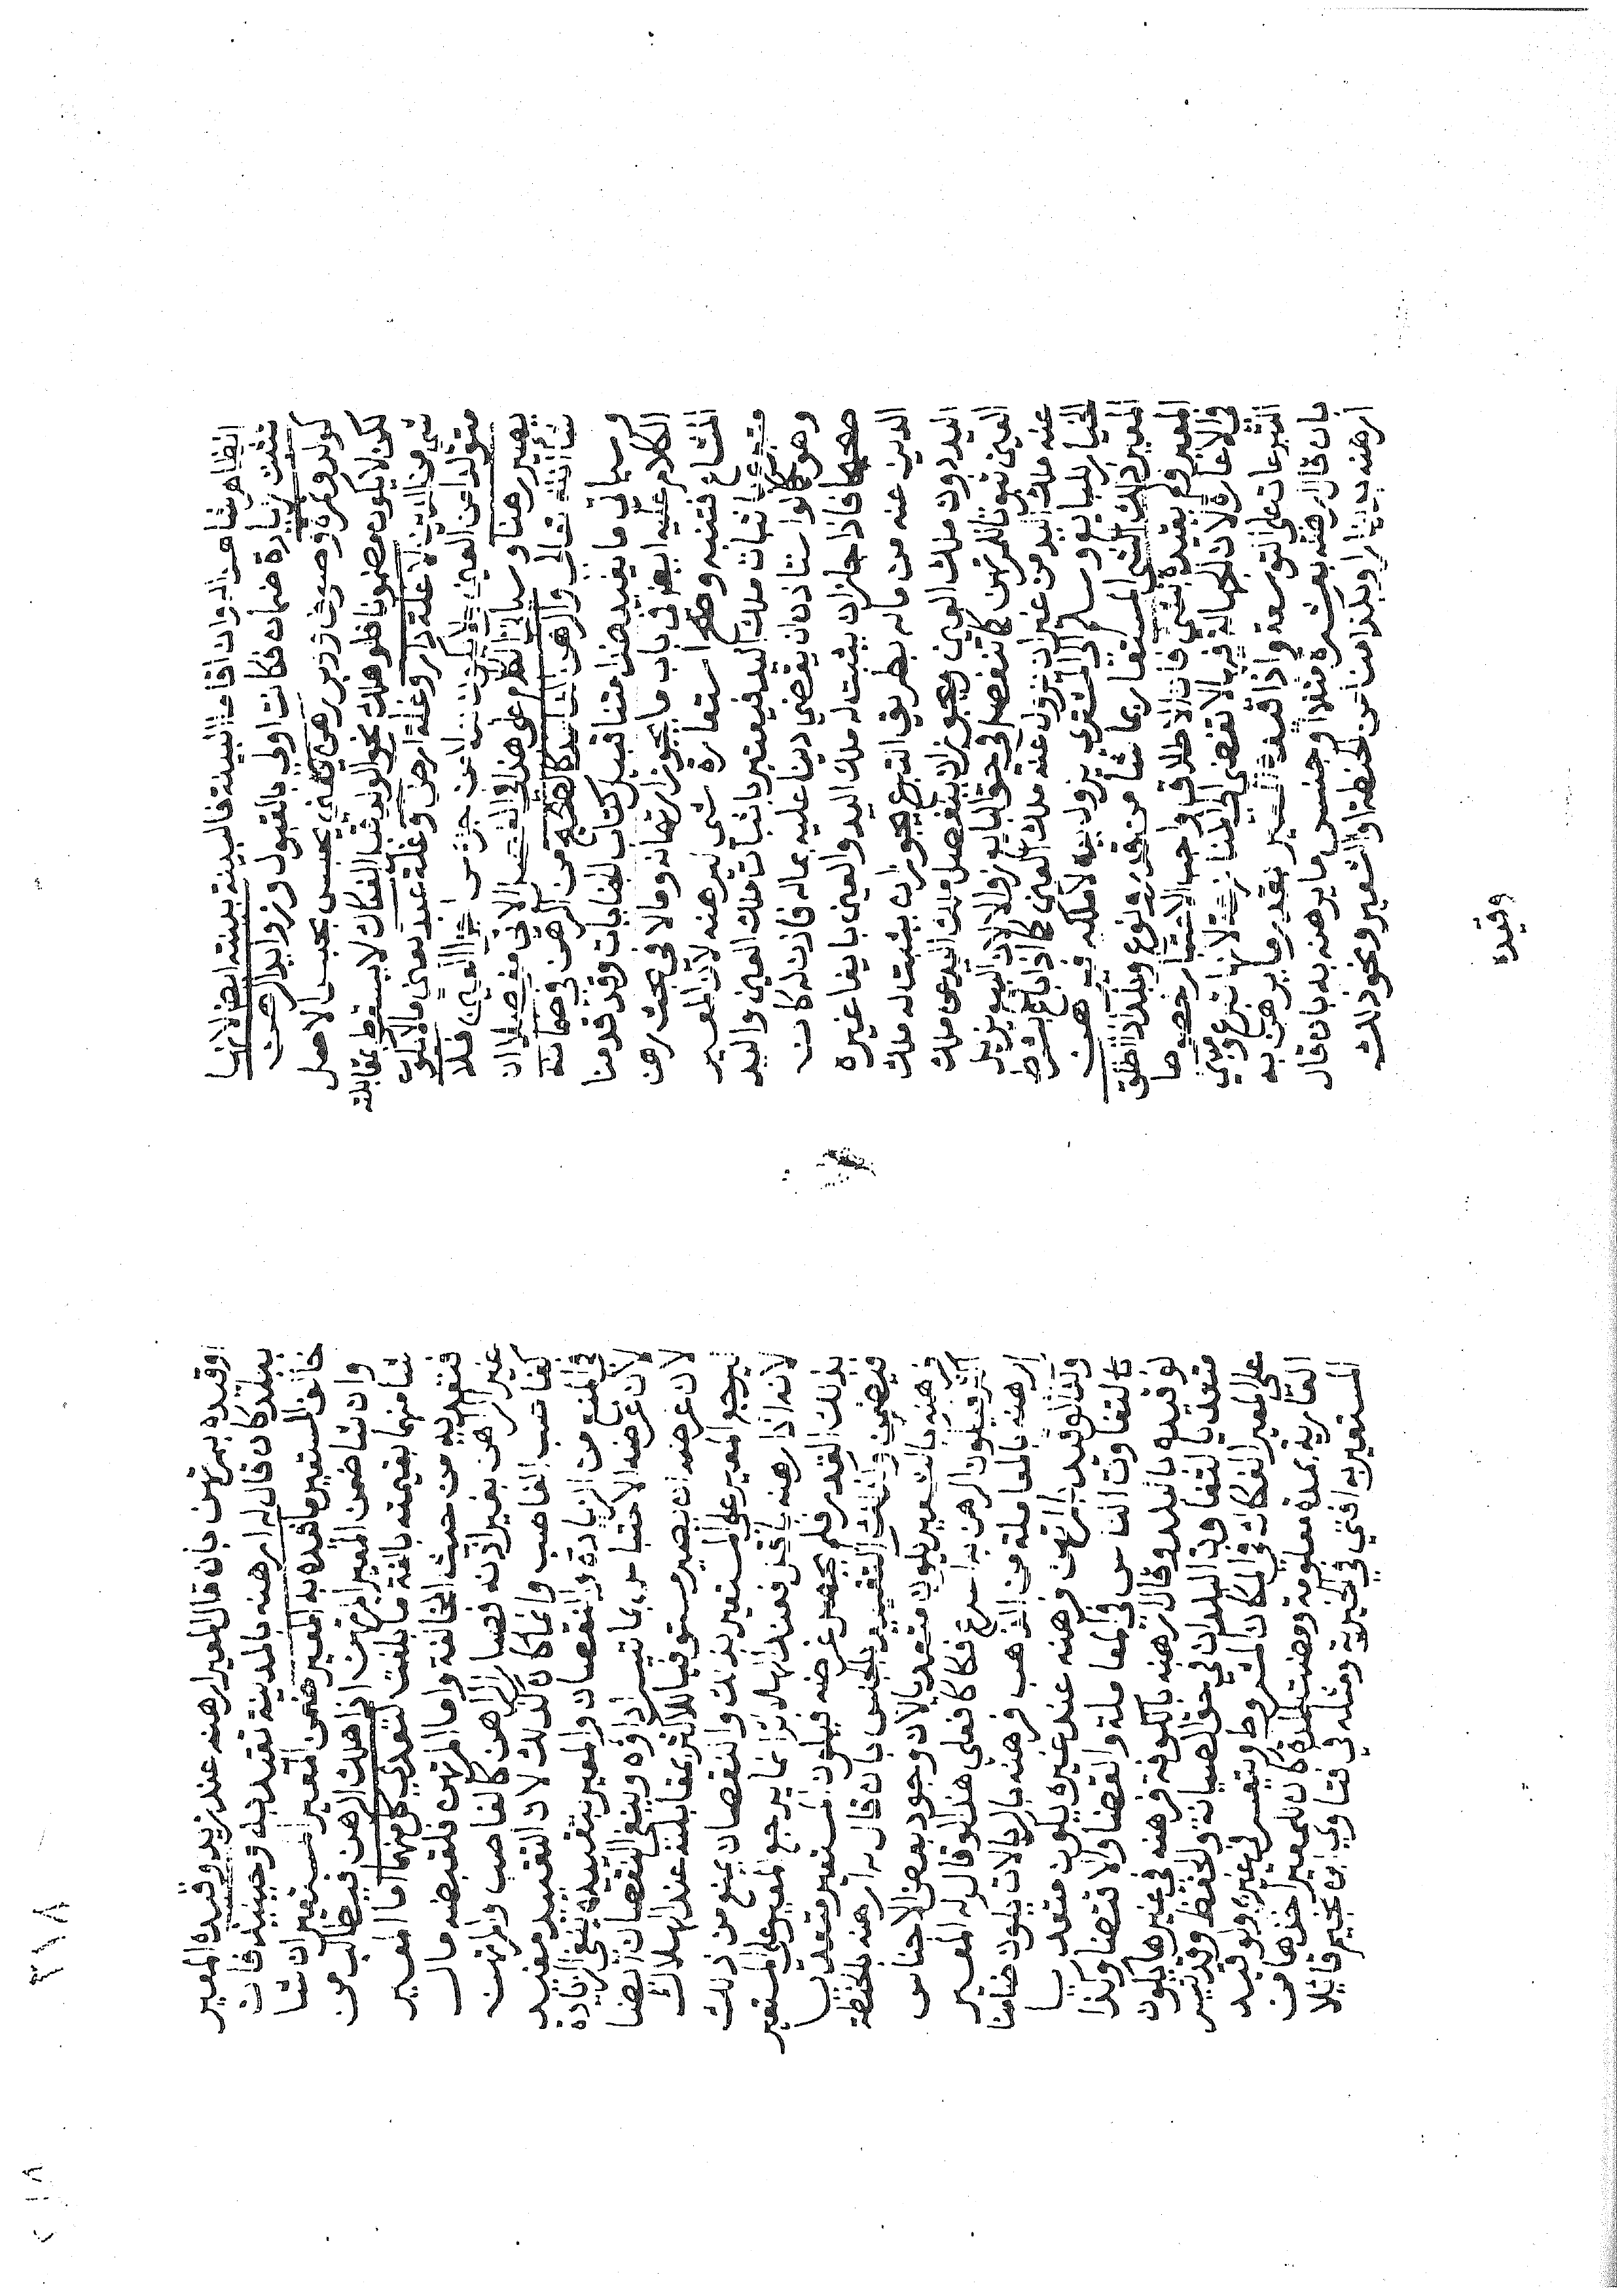 الظاهر شاهد له وان اقاما البينة فالبينة بينته ايضا لانها
تثبت زيادة ضمان فكانت اولى بالقبول وزوايد الرهن
كولد وثمرة وصوف ووبر رهن يعني يحبس بحبس الاصل
لكن لا يكون مضمونا فلو هلك نحو الولد قبل الفكاك لا يسقط بمقابلته
شي من الدين لا غلة دار وغلة ارض وغلة عبد يعني ما لا يكون
متولدا عن العين لا يكون عن جزء من اجزا العين فلا
يصير رهنا وسياتي الكلام على هذا في الفصل الاتي مفصلا ان
شا الله تعالى والرهن الفاسد كالصحيح من الرهن في ضمانه
وسياتي ما يفيد هذا متنا قبيل كتاب الجنايات وقد قدمنا
الكلام عليه ايضا في باب ما يجوز ارتهانه وما لا في بحث رهن
المشاع فتنبه وصح استعارة شي ليرهنه لان المعير
متبرع باثبات ملك اليد فيعتبر باثبات ملك العين واليد
وهو كما لو استاذن ان يقضي دينا عليه بماله فاذن له كان
صحيحا فاذا جاز ان يثبت له ملك اليد والعين بايفا غيره
الدين عنه من ماله بطريق التبرع يجوز ان يثبت له ملك
اليد دون ملك العين ويجوز ان ينفصل ملك اليد عن ملك
العين ثبوتا للمرتهن كما تنفصل في حق البايع زوالا لان البيع يزيل
عنه ملك اليد من غير ان يزول عنه ملك العين كما اذا باع بشرط
الخيار للبايع وسلم الى المشتري يزول يده لا ملكه فيه
المعير ذلك الشي المستعار بما شا من قدر ونوع وبلد اذا اطلق
المعير ولم يقيده بشي فان الاطلاق واجب الاعتبار خصوصا
في الاعارة لان الجهالة فيها لا تفضي الى المنازعة لانها تبرع ومبنى
التبرعات على التوسعة واذا قيده المعير بقدر ما يرهن به
بان قال ارهنه بعشرة مثلا او جنس ما يرهنه به بان قال
ارهنه بدينار او بكذا منا من الحنطة او الشعير ونحو ذلك
وقيده
او قيده بمرتهن بان قال المعير ارهنه عند زيد وقيده المعير
ببلد كان قال له ارهنه بالمدينة تقيد به وحينئذ فان
خالف المستعير ما قيده به المعير ضمن المعير المستعير ان شا
وان شا ضمن المعير المرتهن اذا هلك الرهن فيطالب من
شا منهما بقيمته بالغة ما بلغت لتعدي كل منهما اما المعير
فتعديه من حيث المخالفة واما المرتهن فلقبضه مال
غير الراهن بغير اذنه فصار الراهن كالغاصب والمرتهن
كغاصب الغاصب وانما كان كذلك لان التقييد مفيد
في المنع من الزيادة والنقصان والمعير بتقييده ينفي الزيادة
لان غرضه الاحتباس بما تيسر اداؤه وينفي النقصان ايضا
لان غرضه ان يصير مستوفيا للاكثر بمقابلته عند الهلاك
ليرجع المعير على المستعير بذلك والنقصان يمنع من ذلك
لانه اذا رهنه باقل فعند الهلاك انما يرجع المعير على المستعير
بذلك القدر فلم يحصل غرضه فيكون المستعير متعديا
فيضمن وكذلك التقييد بالجنس بان قال له ارهنه بالحنطة
فرهنه بالشعير يكون متعديا لان وجود بعض الاجناس
ايسر فيكون الرهن به اسرع فكاكا فعلى هذا لو قال له المعير
ارهنه بالمعاملة من الذهب فرهنه بالريالات يكون ضامنا
وكذا لو قيد بمرتهن ورهنه عند غيره يكون متعديا
لتفاوت الناس في المعاملة والقضا والاقتضا وكذا
لو قيده بالبلد وقال ارهنه بالكوفة فرهنه في غيرها يكون
متعديا لتفاوت البلدان في حق الصيانة والحفظ وقد تيسر
على المعير الفكاك في المكان المشروط ويتعسر في غيره ولو قيد
العارية بمدة معلومة ومضت المدة كان للمعير اخذها من
المستعير به افتى في الخيرية ومثله في فتاوي ابن نجيم قايلا
٣١٨